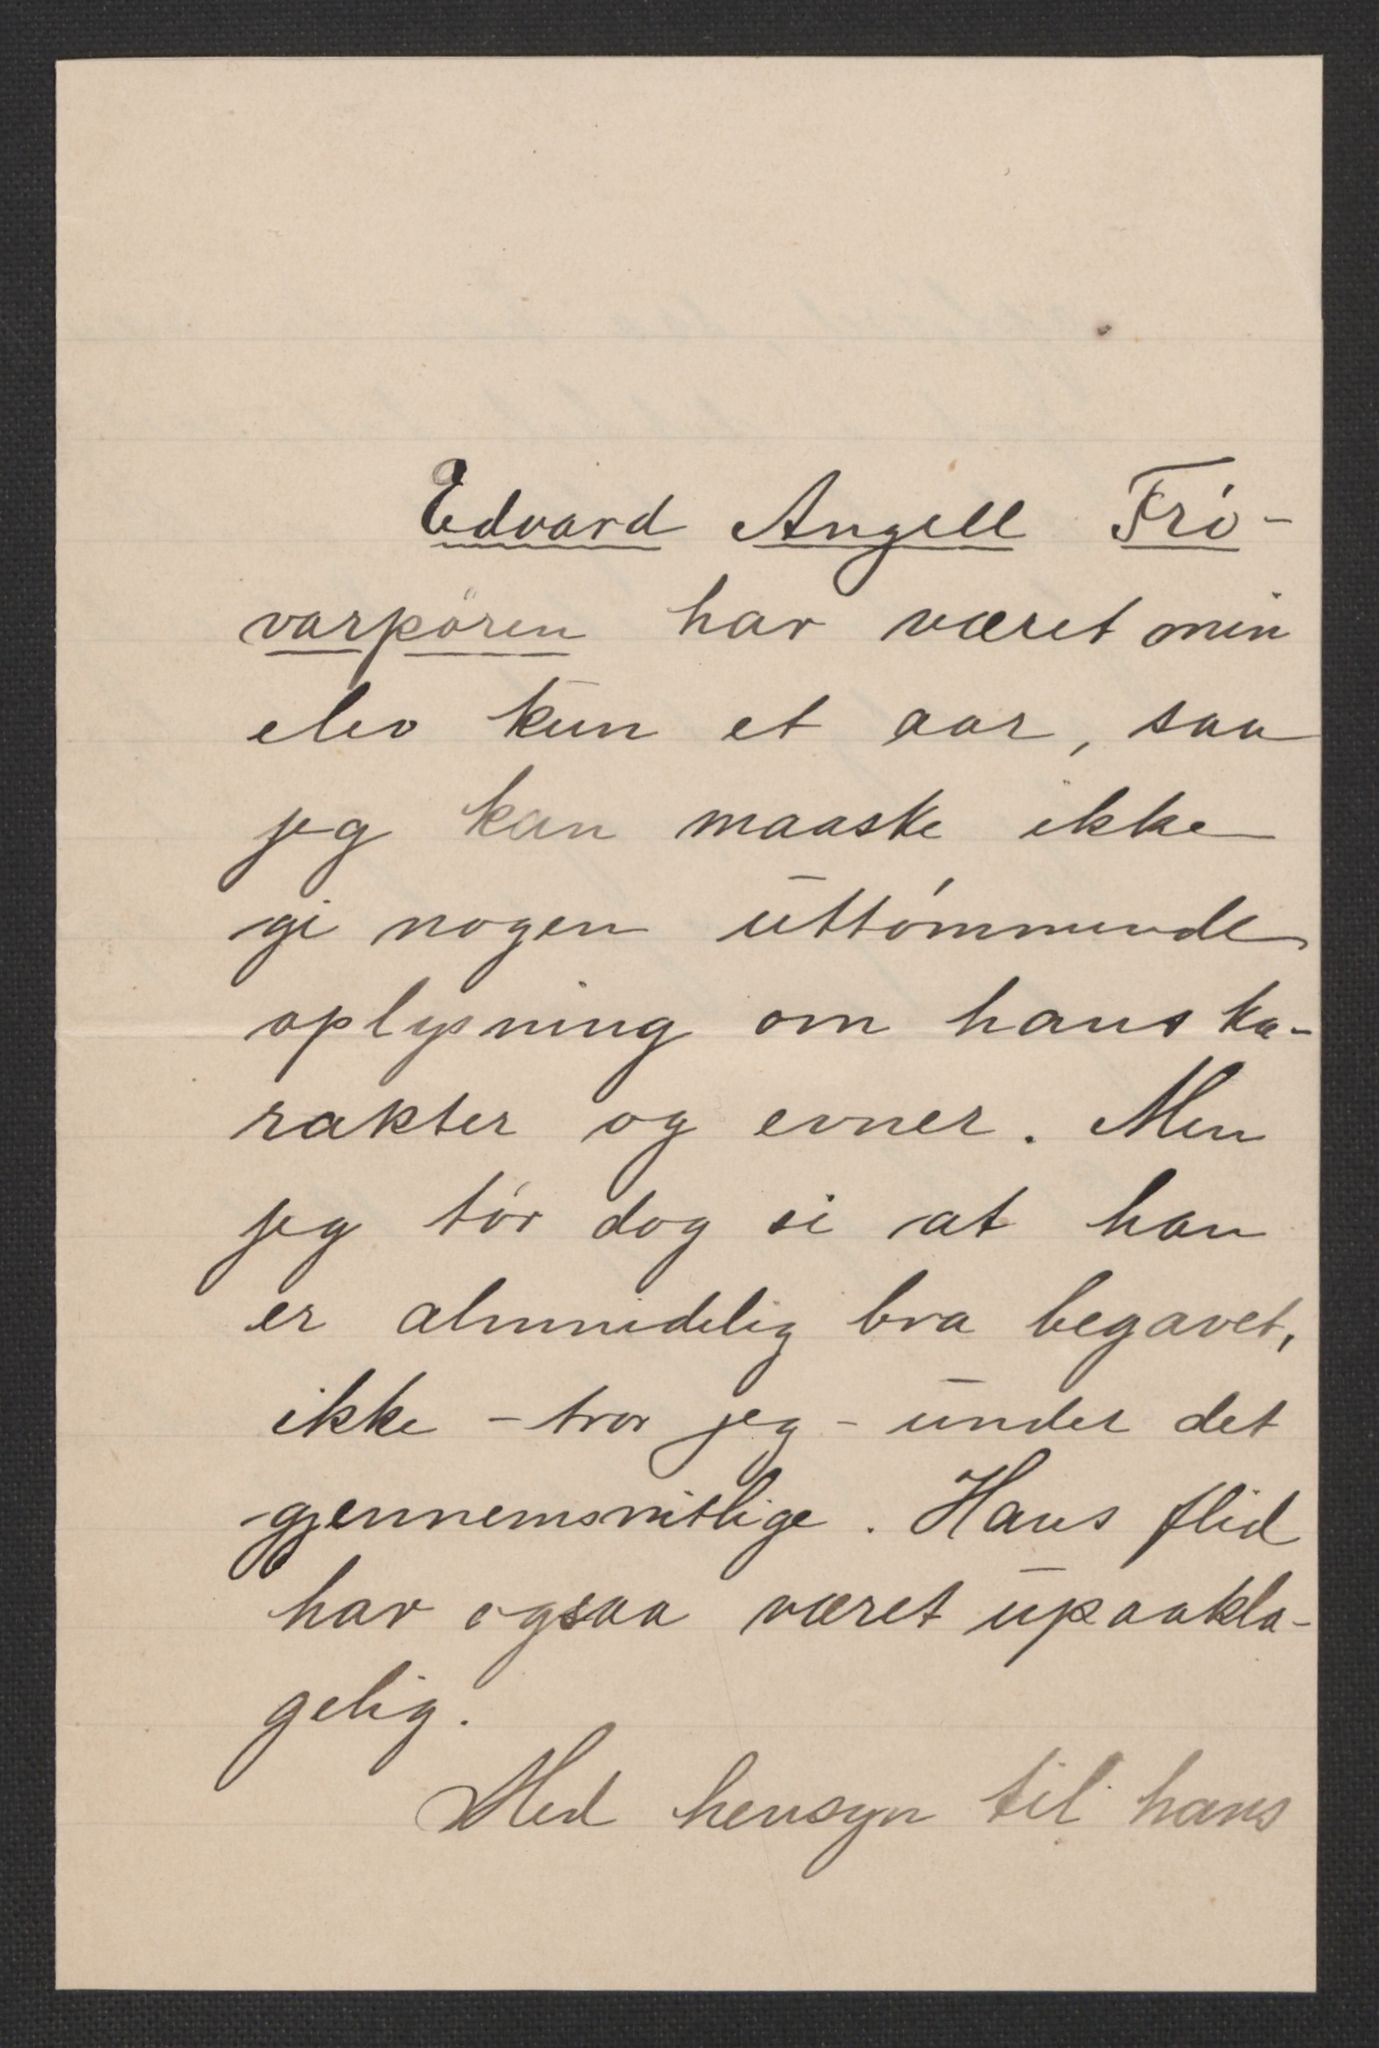 Edvard Angell Frö-
varpören har været min
elev kun et aar, saa
jeg kan maaske ikke
gi nogen uttömmende
oplysning om hans ka-
rakter og evner. Men
jeg tör dog si at han
er almindelig bra begavet,
ikke - tror jeg - under det
gjennemsnitlige. Hans flid
har ogsaa været upaakla-
gelig.
Med hensyn til hans